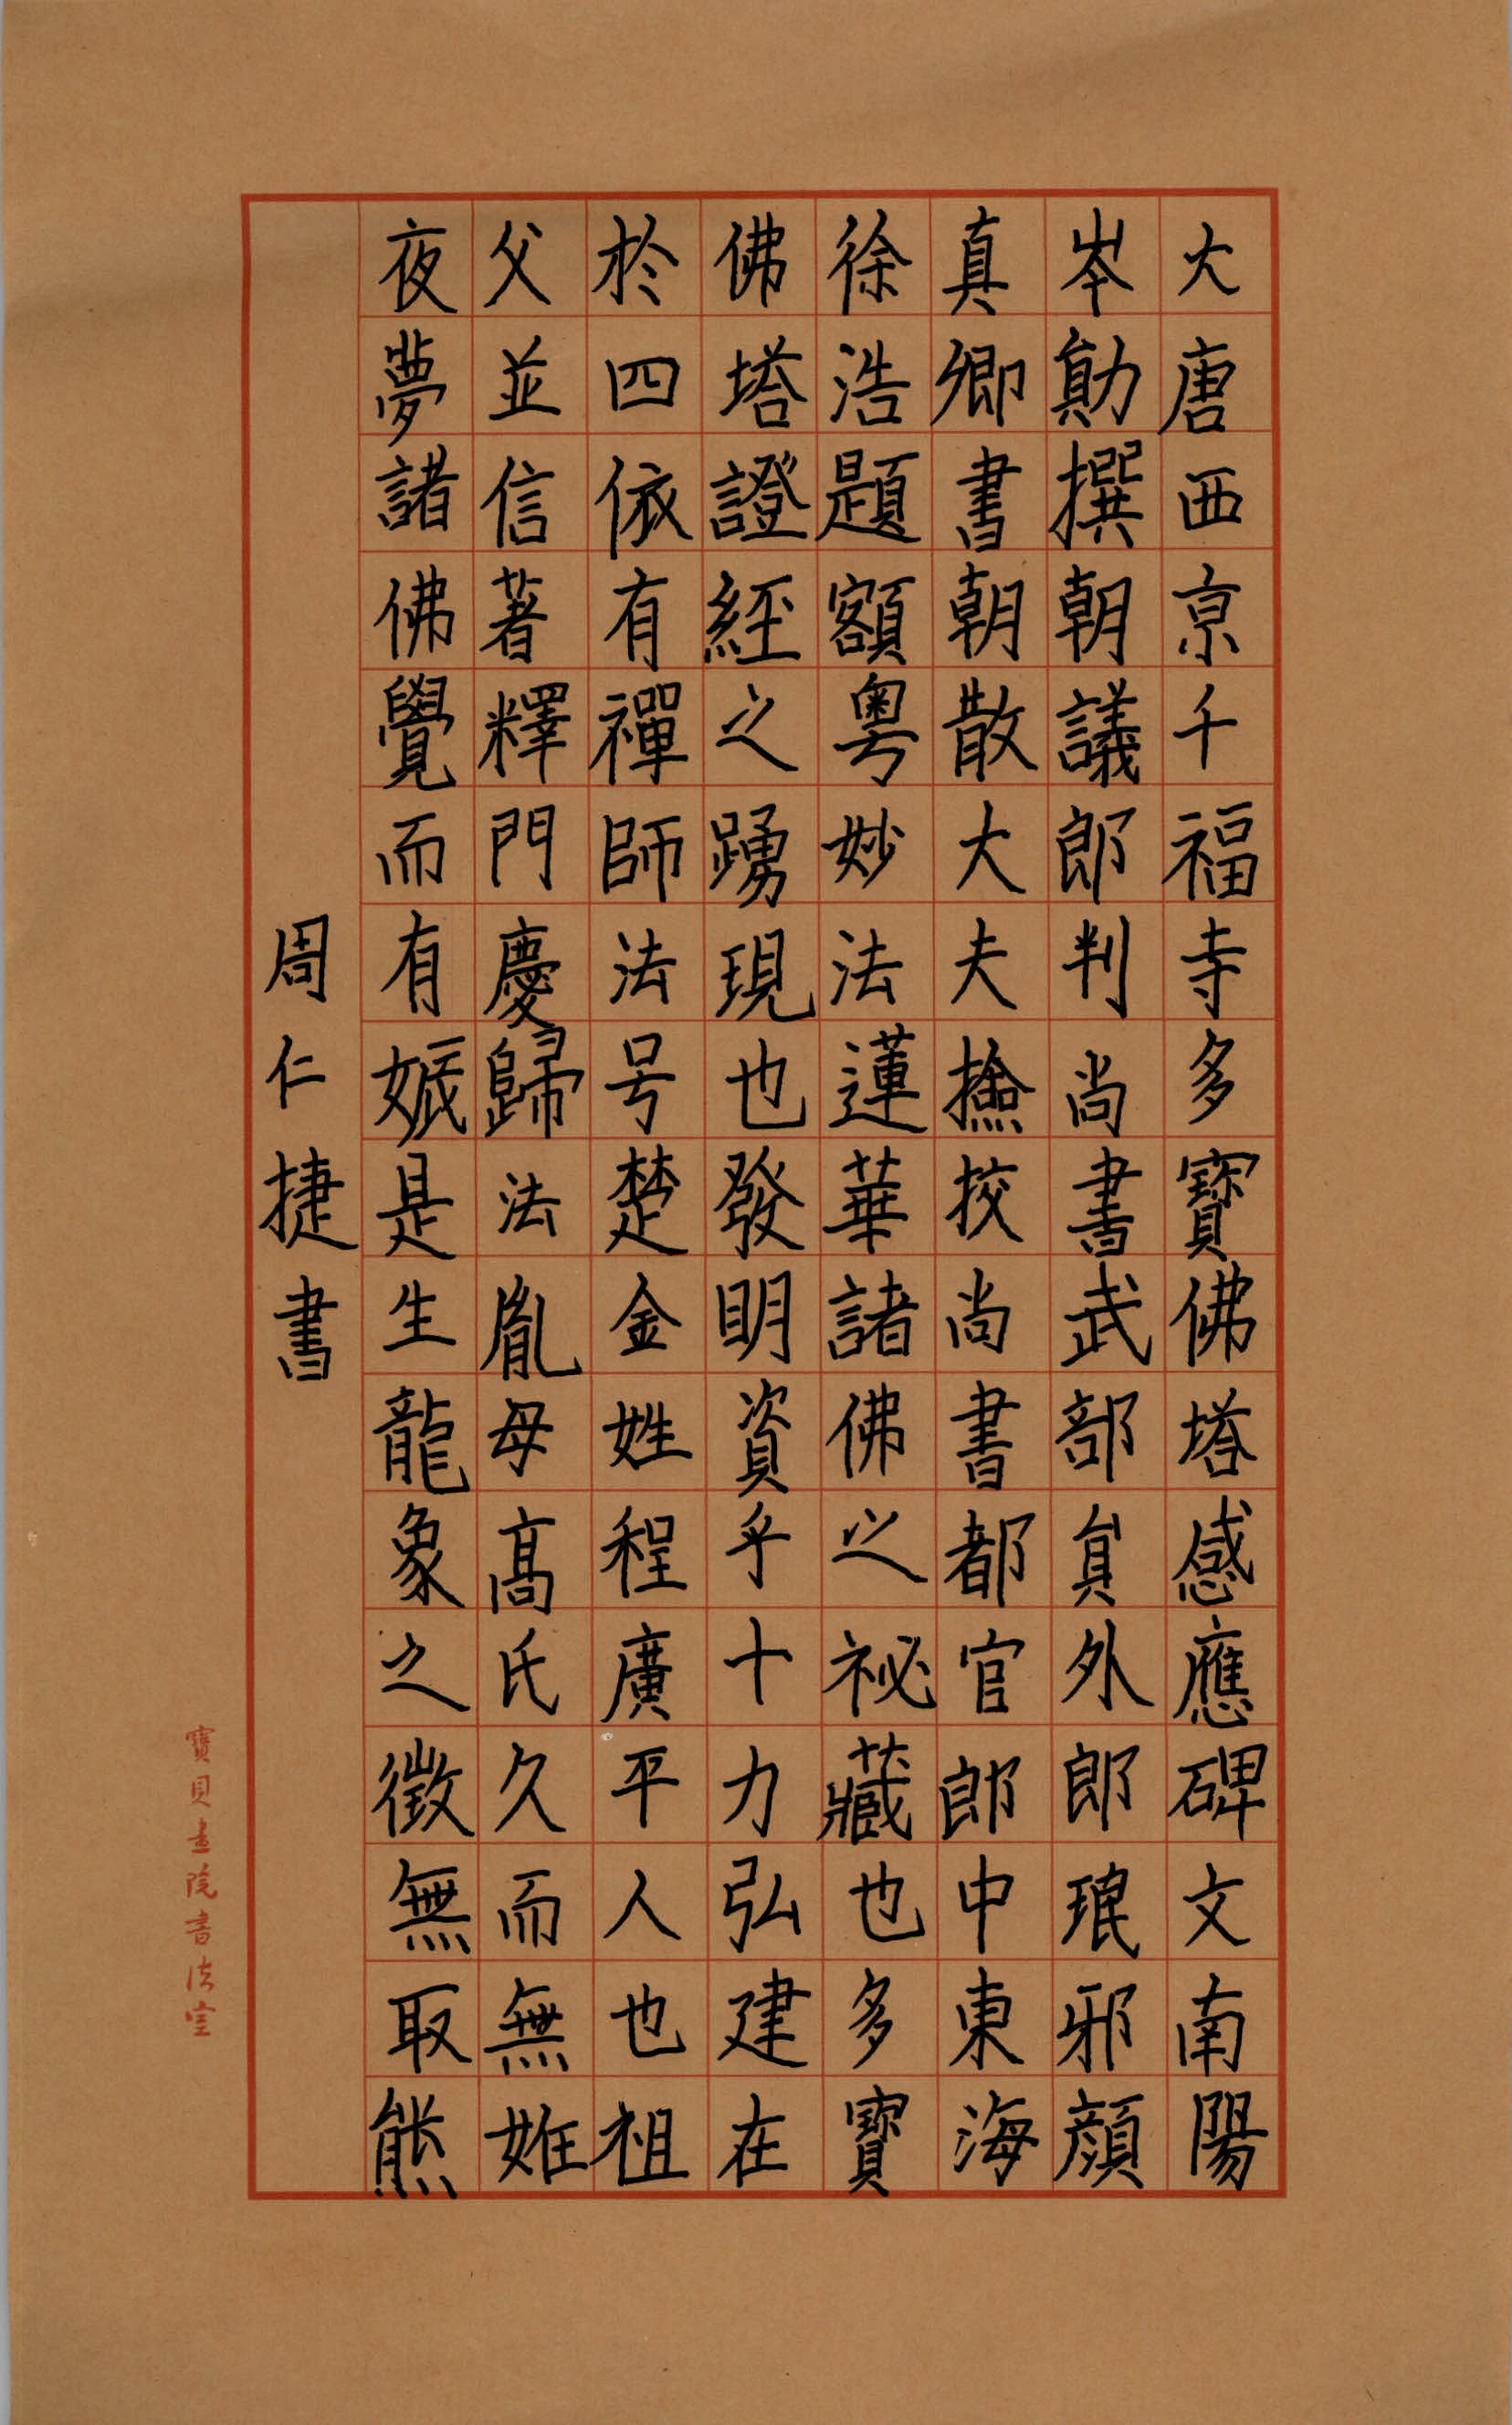 大唐西京千福寺多寶佛塔感應碑文南陽
岑勛撰朝議郎判尚書武部員外郎琅邪顏
真卿書朝散大夫撿挍尚書都官郎中東海
徐浩題額粵妙法蓮華諸佛之祕藏也多寶
佛塔證經之踴現也發明資乎十力弘建在
於四依有禪師法号楚金姓程廣平人也祖
父並信著釋門慶歸法胤母高氏久而無姙
夜夢諸佛覺而有娠是生龍象之徵無取熊
周仁捷書
寶貝畫院書法室